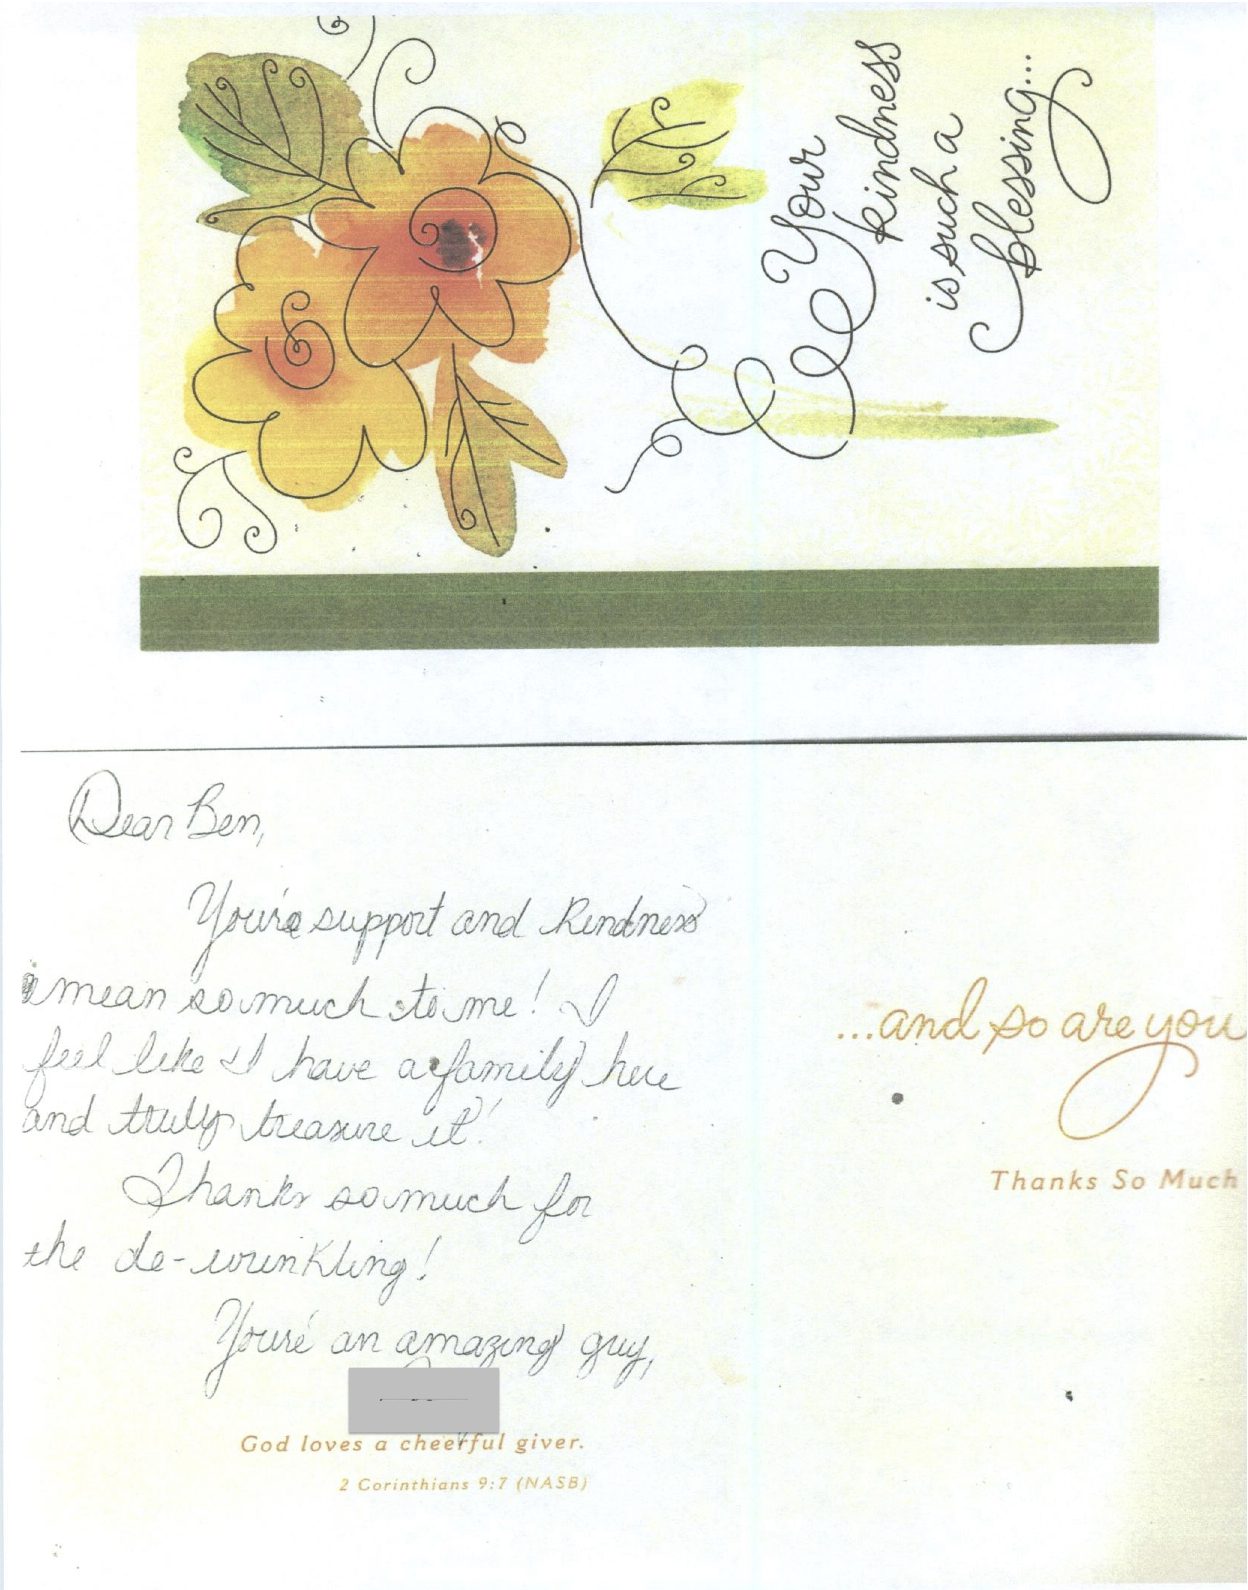 Your
kindness
is such a
blessing...
Dear Ben,
You're support and kindness
mean so much to me! I
feel like I have a family here
and truly treasure it!
Thanks so much for
the de-wrinkling!
You're an amazing guy,
God loves a cheerful giver.
2 Corinthians 9:7 (NASB)
...and so are you
Thanks So Much